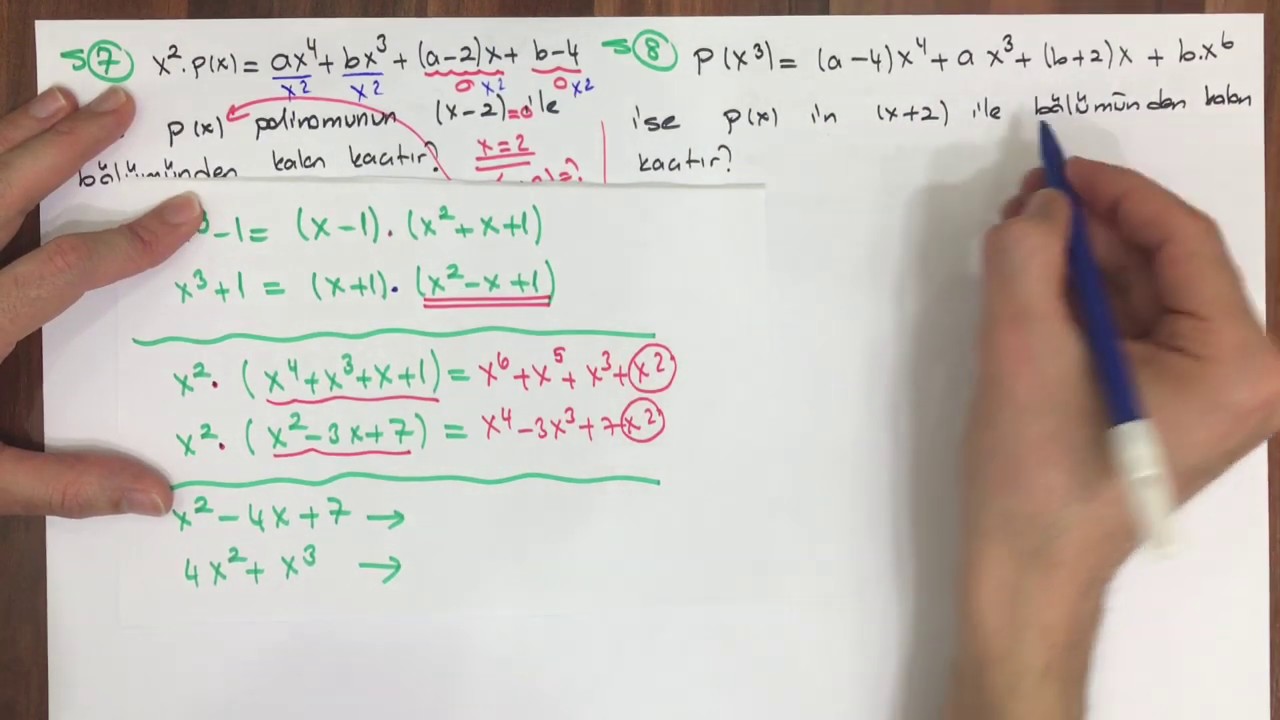 S7 x².P(x) = ax⁴ + bx³ + (a-2)x + b-4
x² x² 0 x² 0 x²
P(x) polinomunun (x-2)=0 ile
bölümünden kalan kaçtır? x=2
S8 P(x³) = (a-4)x⁴ + a x³ + (b+2)x + b.x⁶
ise P(x) in (x+2) ile bölümünden kalan
kaçtır?
-1 = (x-1).(x²+x+1)
x³+1 = (x+1).(x²-x+1)
x².(x⁴+x³+x+1) = x⁶+x⁵+x³+x²
x².(x²-3x+7) = x⁴-3x³+7x²
x²-4x+7 →
4x²+x³ →